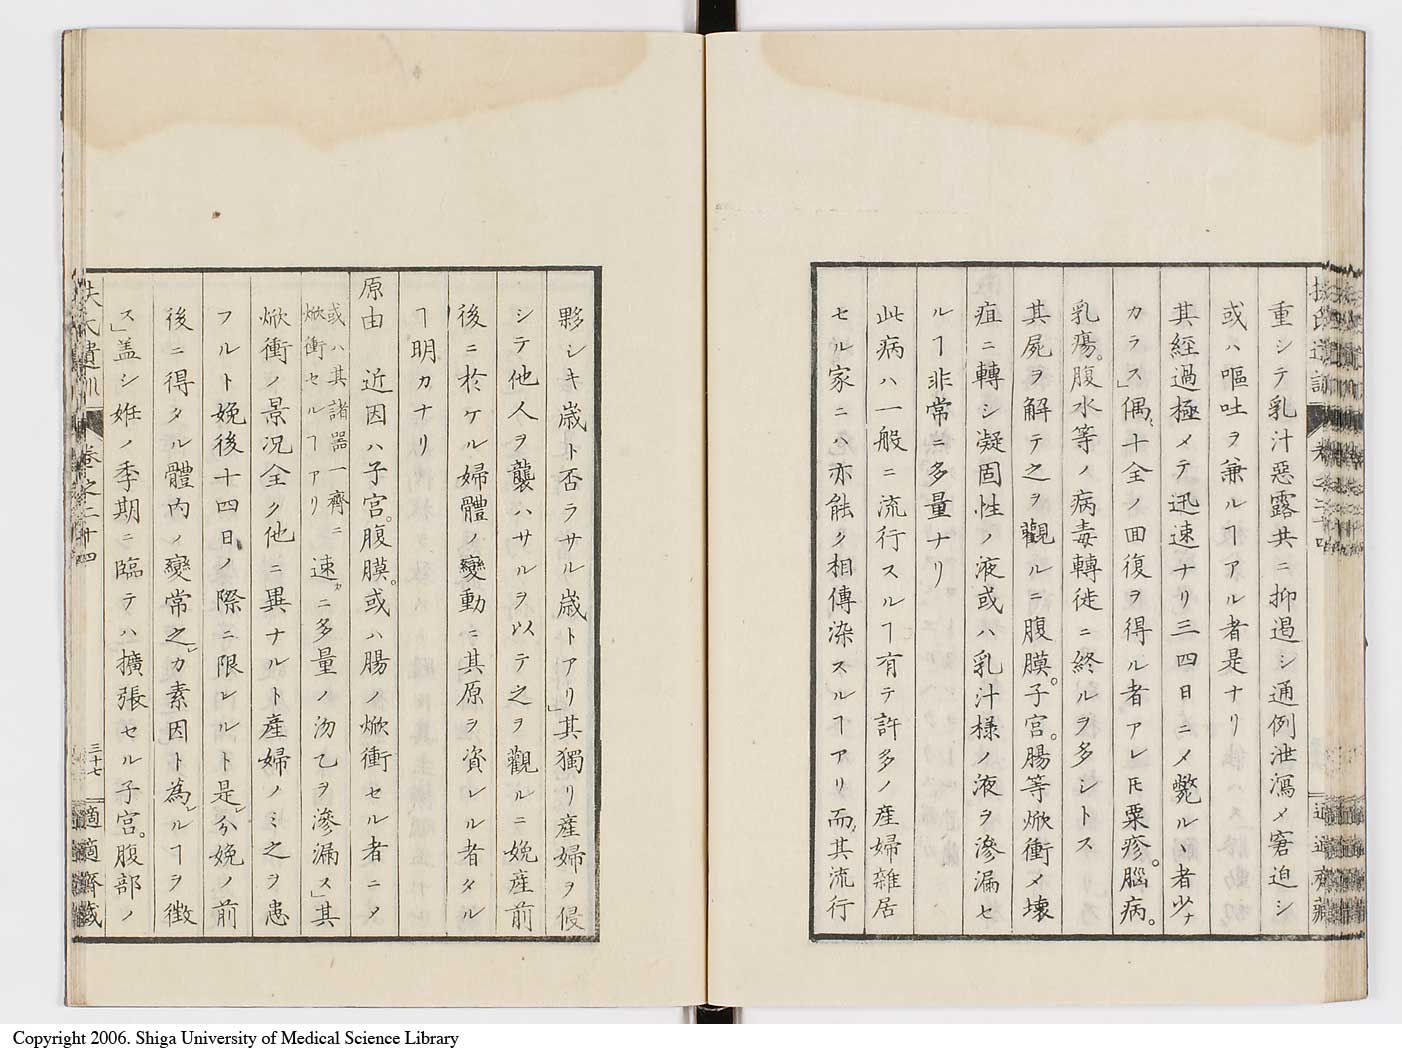 重シテ乳汁惡露共ニ抑遏シ通例泄瀉〆窘迫シ
或ハ嘔吐ヲ兼ルヿアル者是ナリ
其經過極メテ迅速ナリ三四日ニ〆斃ル丶者少ナ
カラス」偶〻十全ノ回復ヲ得ル者アレ𪜈粟疹。腦病。
乳瘍。腹水等ノ病毒轉徙ニ終ルヲ多シトス
其屍ヲ解テ之ヲ觀ルニ腹膜。子宮。腸等焮衝〆壊
疽ニ轉シ凝固性ノ液或ハ乳汁様ノ液ヲ滲漏セ
ルヿ非常ニ多量ナリ
此病ハ一般ニ流行スルヿ有テ許多ノ産婦雜居
セル家ニハ亦能ク相傳染スルヿアリ而〆其流行
夥シキ歳ト否ラサル歳トアリ」其獨リ産婦ヲ侵
シテ他人ヲ襲ハサルヲ以テ之ヲ觀ルニ娩産前
後ニ於ケル婦體ノ變動ニ其原ヲ資レル者タル
ヿ明カナリ
原由 近因ハ子宮。腹膜。或ハ腸ノ焮衝セル者ニ〆
或ハ其諸器一齊ニ
焮衝セルヿアリ
速カニ多量ノ沕乙ヲ滲漏ス」其
焮衝ノ景况全ク他ニ異ナルト産婦ノミ之ヲ患
フルト娩後十四日ノ際ニ限レルト是レ分娩ノ前
後ニ得タル體内ノ變常之レカ素因ト為レルヿヲ徴
ス」盖シ姙ノ季期ニ臨テハ擴張セル子宮。腹部ノ
扶氏遺訓 卷之二十四 三十七 適適齋藏